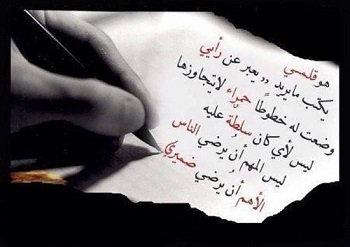 هو قلمي
يكتب ما يريد ويعبر عن رأيي
وضعت له خطوطاً حمراء لا يتجاوزها
ليس لأي كان سلطة عليه
ليس المهم أن يرضي الناس
الأهم أن يرضي ضميري